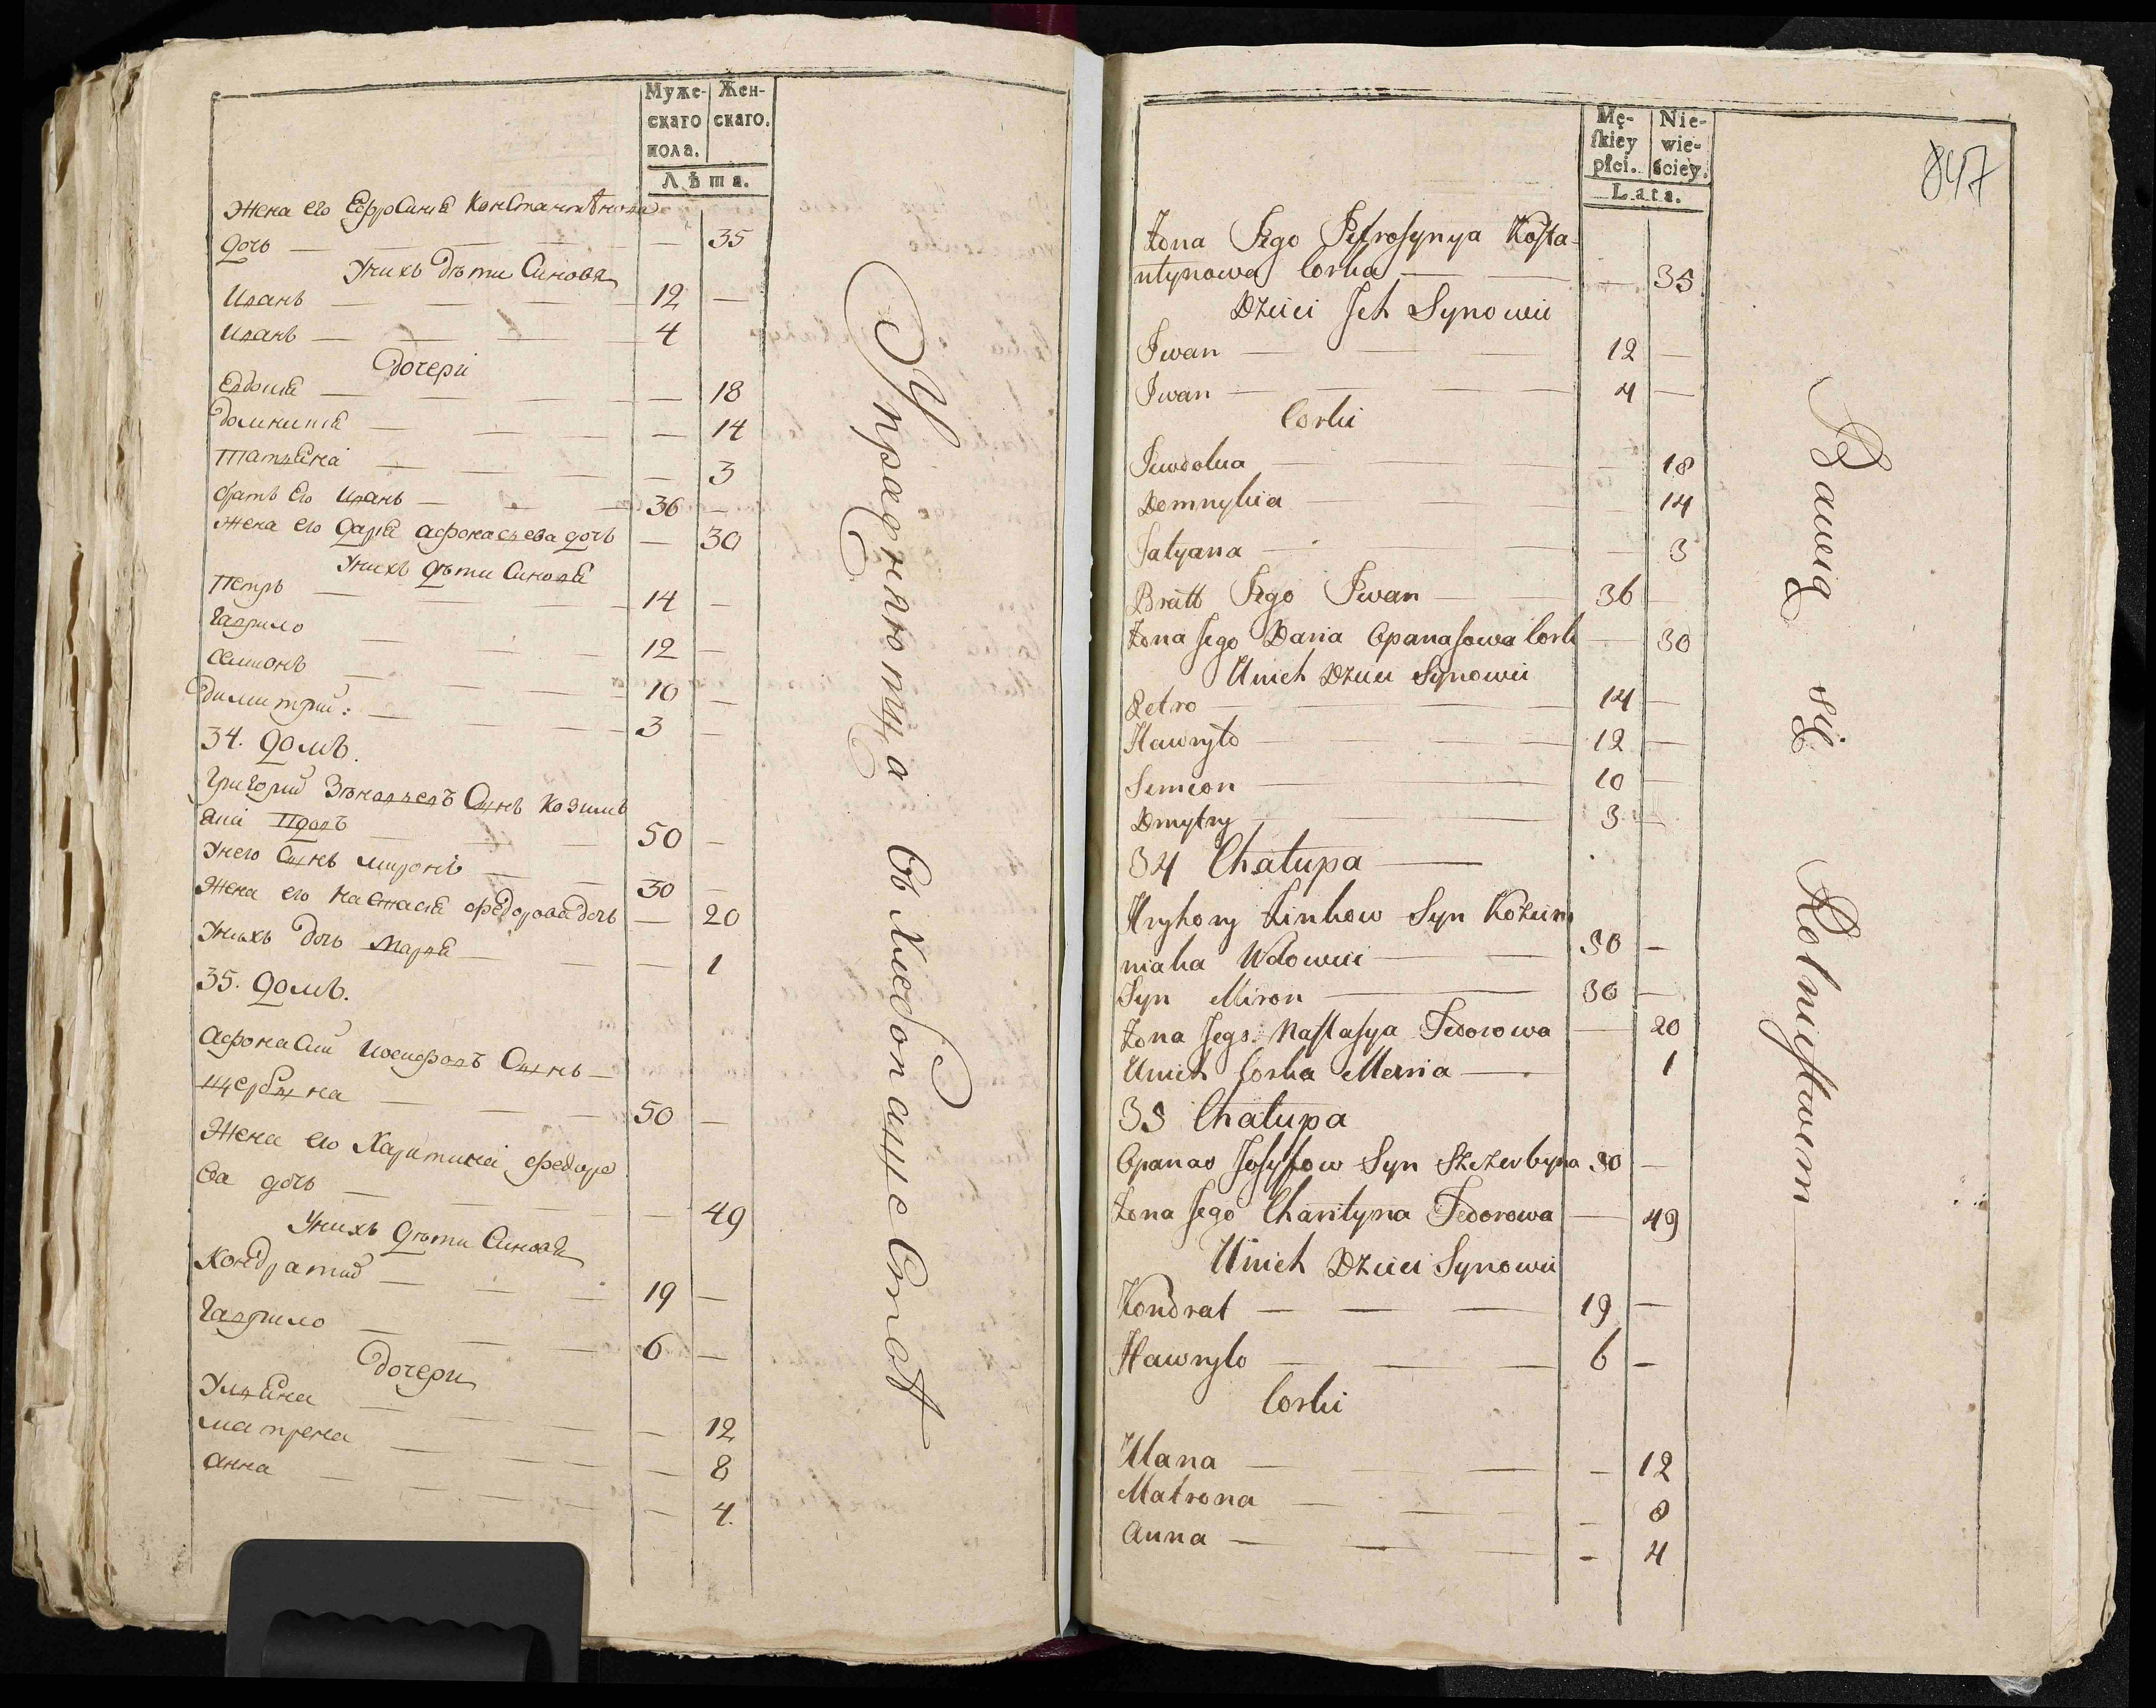 Муже-
скаго
пола.
Жен-
скаго.
Лѣта.
Жена его Ефросиния Константинова
дочь — — 35
У нихъ дѣти Синовя
Иванъ — 12 —
Иванъ — 4
Дочери
Евдокия — — 18
Домникия — — 14
Татияна — — 3
братъ его Иванъ — 36 —
Жена его Дария Афонасьева дочь — 30
У нихъ дѣти Синовя
Петръ — 14 —
Гаврило — 12 —
Семионъ — 10 —
Димитрий: — 3 —
34. Домъ.
Григорий Зѣновьевъ Сынъ Козимъ
яка Вдовъ — 50 —
У него Сынъ Миронъ — 30 —
Жена его Настасия Федорова дочь — 20
У нихъ дочь Мария — — 1
35. Домъ.
Афонасии Иосифовъ Сынъ —
Щербына — 50 —
Жена его Харитина Федоро
ва дочь — — 49
У нихъ дѣти Синовя
Кондратий — 19 —
Гаврило — 6 —
Дочери
Улияна — — 12
Матрена — — 8
Анна — — 4.
Упражняютца въ хлебопашестве
Mę-
ſkiey
płci.
Nie-
wie-
ściey.
Lata.
847
Żona Jego Jefrosynya Kosta-
ntynowa Corka — — 35
Dzieci Jch Synowie
Jwan — 12 —
Jwan — 4 —
Corki
Jewdokia — — 18
Domnykia — — 14
Tatyana — — 3
Bratt Jego Jwan — 36 —
Żona Jego Daria Opanasowa Cork — 30
U nich Dzieci Synowie
Petro — 14 —
Hawryło — 12 —
Semeon — 10 —
Dmytry — 3 —
34 Chałupa —
Hryhory Zinkow Syn Kozim
niaka Wdowiec — 50 —
Syn Miron — 30 —
Żona Jego Nastasya Fedorowa — 20
U nich Corka Maria — 1
35 Chałupa
Opanas Josyfow Syn Szczerbyna 50 —
Żona Jego Charityna Fedorowa — 49
U nich Dzieci Synowie
Kondrat — 19 —
Hawryło — 6 —
Corki
Ulana — — 12
Matrona — — 8
Anna — — 4
Bawią się Rolnistwem —